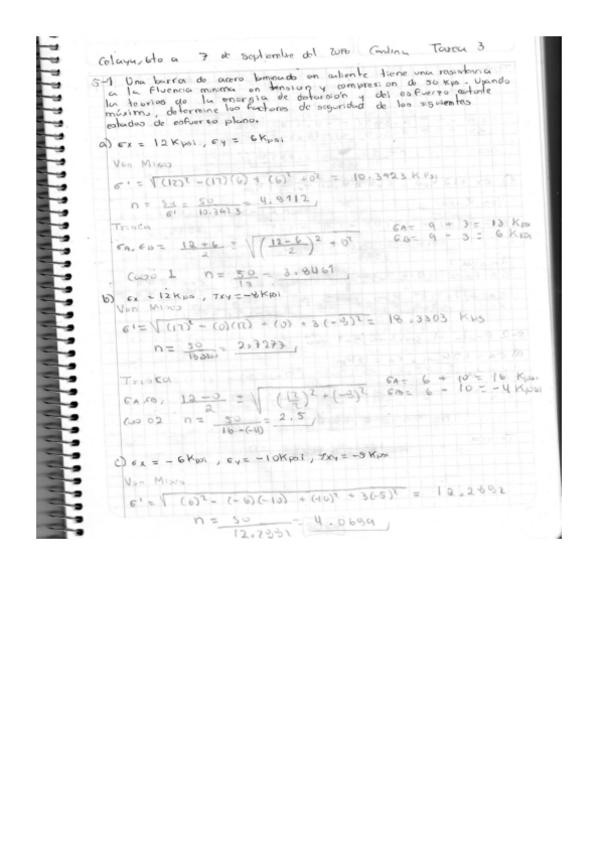 Celaya, Gto a 7 de Septiembre del Tarea 3
5-1 Una barra de acero laminado en caliente tiene una resistencia
a la fluencia minima en tension y compresion de 50 Kpsi. Usando
la teorias de la energia de distorsion y del esfuerzo cortante
máximo, determine los factores de seguridad de los siguientes
estados de esfuerzo plano.
a) σx = 12 Kpsi, σy = 6 Kpsi
Von Mises
σ' = √(12)² - (12)(6) + (6)² + 0² = 10.3923 Kpsi
n = Sy/σ' = 50/10.3923 = 4.8112
Tresca
σA, σB = (12+6)/2 ± √((12-6)/2)² + 0²
σA = 9 + 3 =
σB = 9 - 3 = 6 Kpsi
Caso 1 n = 50/13 = 3.8461
b) σx = 12 Kpsi, τxy = -8 Kpsi
Von Mises
σ' = √(12)² - (0)(12) + (0) + 3(-8)² = 18.3303 Kpsi
n = = 2.7277
Tresca
σA, σB, (12-0)/2 ± √(12/2)² + (-8)²
σA = 6 + 10 = 16 Kpsi
σB = 6 - 10 = -4 Kpsi
Caso 2 n = 50/(16-(-4)) = 2.5
c) σx = -6 Kpsi, σy = -10 Kpsi, τxy = -5 Kpsi
Von Mises
σ' = √(6)² - (-6)(-10) + (-10)² + 3(-5)² =
n = 50/ =